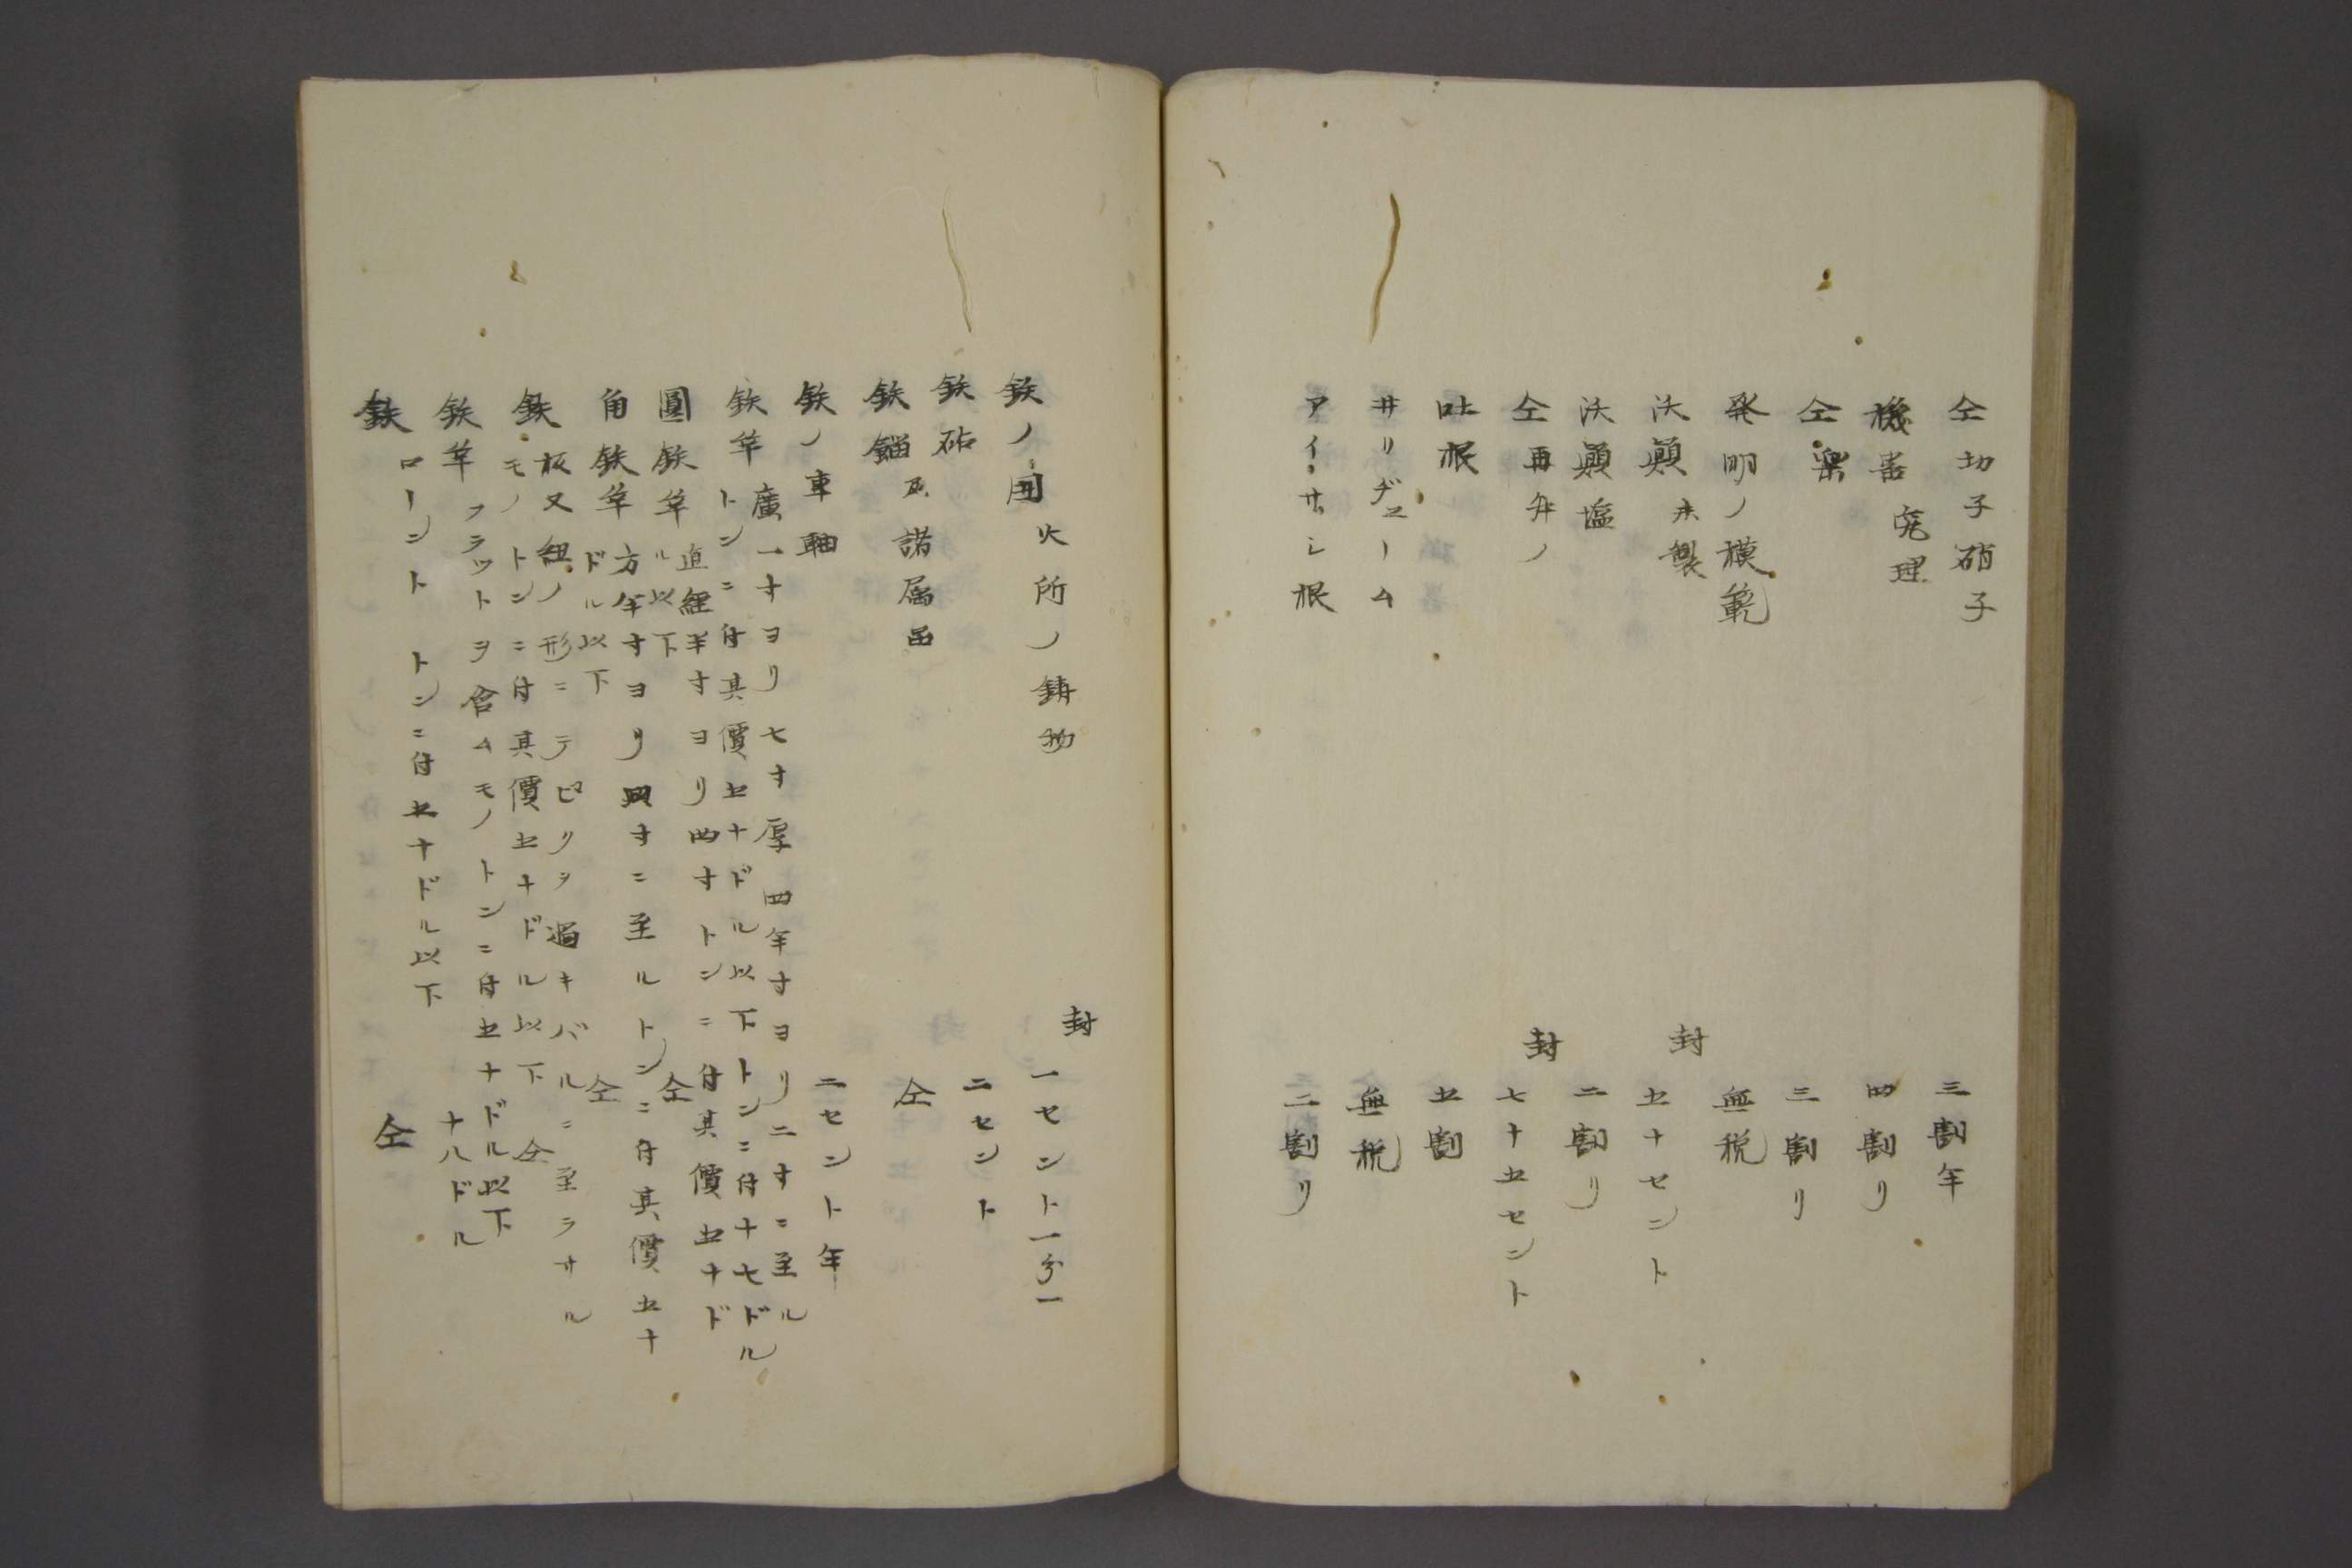 仝切子硝子 三割半
機器 究理 四割リ
仝樂 三割リ
発明ノ模範 無税
沃顛 未製 封 五十セント
沃顛塩 二割リ
仝再升ノ 封 七十五セント
吐根 五割
井リヂユーム 無税
アイサシ根 二割リ
鉄ノ用火所ノ鋳物 封 一セント一分一
鉄砧 二セント
鉄錨 及諸属函 仝
鉄ノ車軸 二セント半
鉄竿 廣一寸ヨリ七寸厚四半寸ヨリ二寸ニ至ル
トンニ付其價五十ドル以下トンニ付十七ドル
圓鉄竿 直経半寸ヨリ四寸トンニ付其價五十ド
ル以下 仝
角鉄竿 方半寸ヨリ四寸ニ至ルトンニ付其價五十
ドル以下 仝
鉄 板又紐ノ形ニテピリヲ過キバルニ至ラサル
モノトンニ付其價五十ドル以下 仝
鉄竿 フラットヲ含ムモノトンニ付五十ドル以下 十八ドル
鉄 ローント トンニ付五十ドル以下 仝